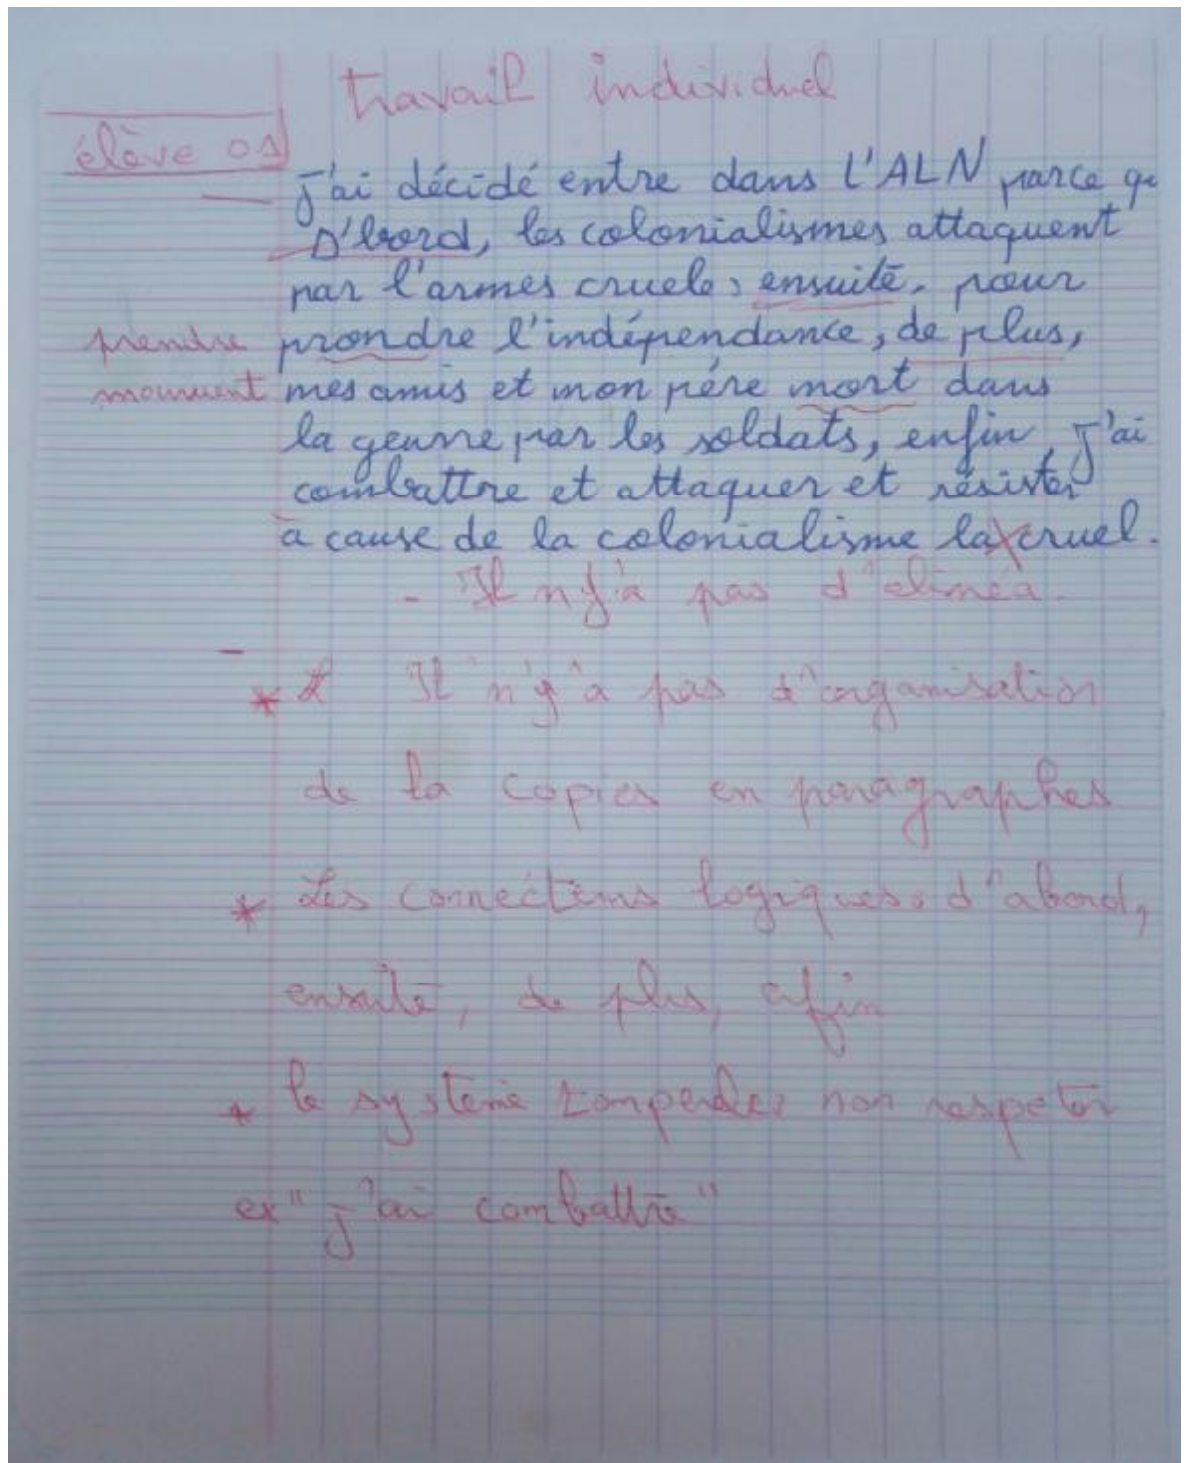 travail individuel
élève 01
J'ai décidé entre dans l'ALN parce qu
D'bord, les colonialismes attaquent
par l'armes cruele, ensuite, pour
prendre prondre l'indépendance, de plus,
mouruent mes amis et mon pére mort dans
la geurre par les soldats, enfin J'ai
combattre et attaquer et résister
à cause de la colonialisme la cruel.
- Il n'y'a pas d'elinéa.
* Il n'y'a pas d'organisation
de la copies en paragraphes
* Les connecteurs logiques: d'abord,
ensuite, de plus, enfin
* le système non respeter
ex "j'ai combattre"